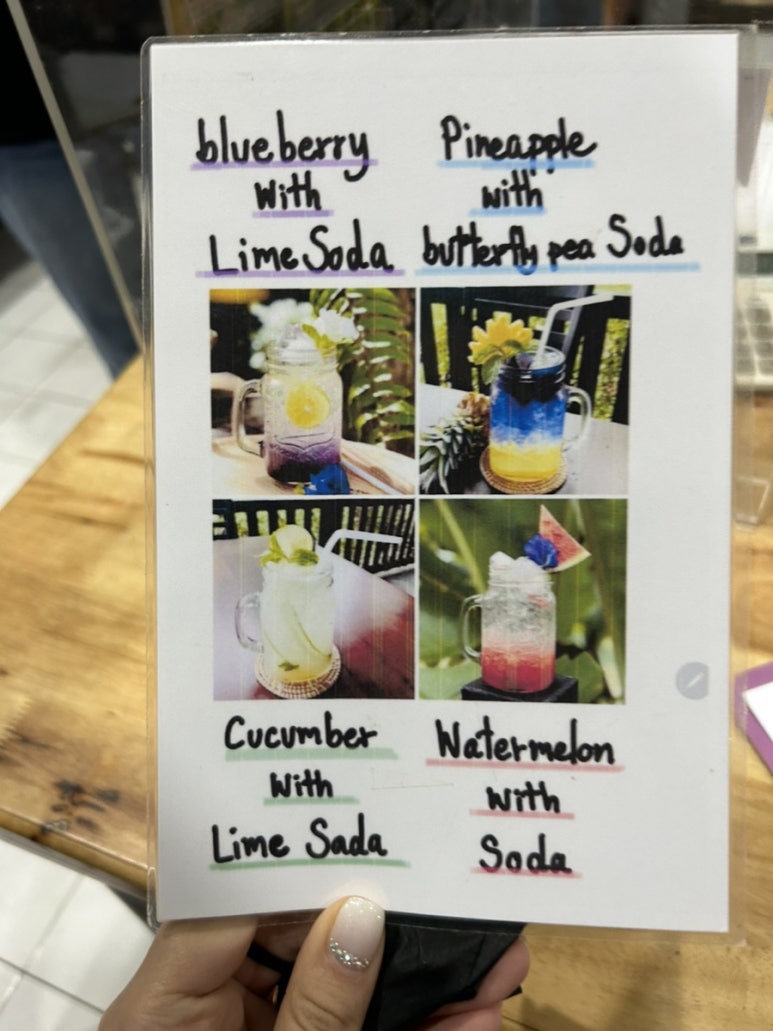 blueberry
with
Lime Soda
Pineapple
with
butterfly pea Soda
Cucumber
with
Lime Sada
Watermelon
with
Soda